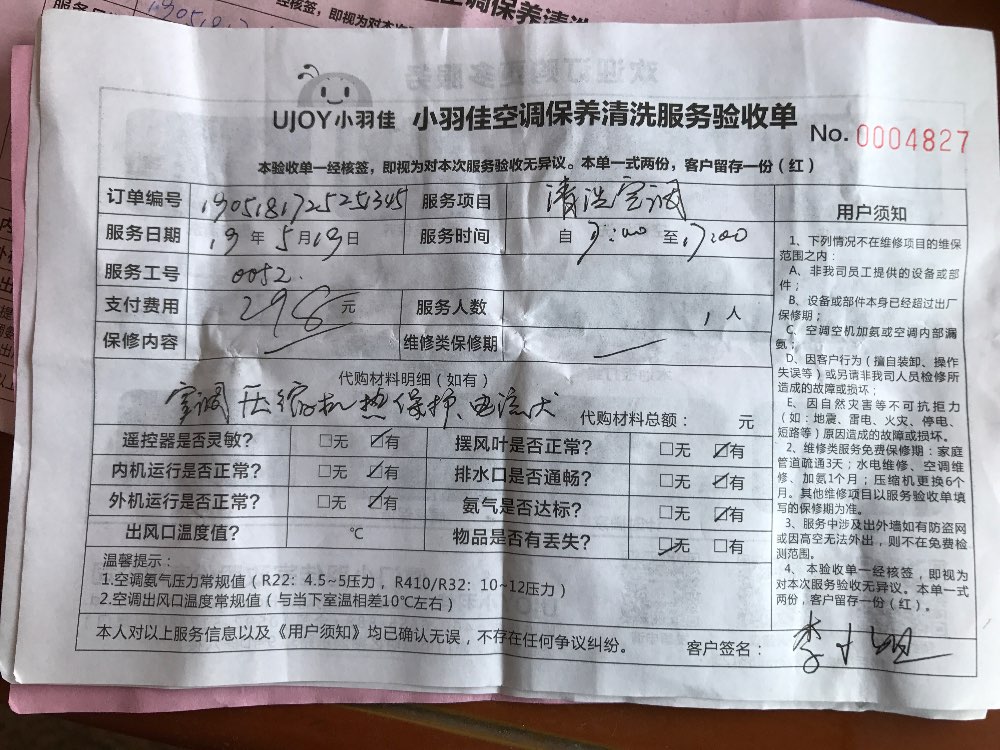 UJOY小羽佳 小羽佳空调保养清洗服务验收单 No. 0004827
本验收单一经核签，即视为对本次服务验收无异议。本单一式两份，客户留存一份（红）
订单编号 190518172525345 服务项目 清洗空调
服务日期 19年5月19日 服务时间 自 至17:00
服务工号 0052.
支付费用 298元 服务人数 1人
保修内容 维修类保修期
代购材料明细（如有）
空调压缩机热保护、电流大
代购材料总额： 元
遥控器是否灵敏? □无 ☑有 摆风叶是否正常? □无 ☑有
内机运行是否正常? □无 ☑有 排水口是否通畅? □无 ☑有
外机运行是否正常? □无 ☑有 氨气是否达标? □无 ☑有
出风口温度值? ℃ 物品是否有丢失? ☑无 □有
温馨提示：
1.空调氨气压力常规值（R22: 4.5~5压力，R410/R32: 10~12压力）
2.空调出风口温度常规值（与当下室温相差10℃左右）
本人对以上服务信息以及《用户须知》均已确认无误，不存在任何争议纠纷。 客户签名： 李小姐
用户须知
1、下列情况不在维修项目的维保
范围之内：
A、非我司员工提供的设备或部
件；
B、设备或部件本身已经超过出厂
保修期；
C、空调空机加氨或空调内部漏
氨；
D、因客户行为（擅自装卸、操作
失误等）或另请非我司人员检修所
造成的故障或损坏；
E、因自然灾害等不可抗拒力
（如：地震、雷电、火灾、停电、
短路等）原因造成的故障或损坏。
2、维修类服务免费保修期：家庭
管道疏通3天；水电维修、空调维
修、加氨1个月；压缩机更换6个
月。其他维修项目以服务验收单填
写的保修期为准。
3、服务中涉及出外墙如有防盗网
或因高空无法外出，则不在免费检
测范围。
4、本验收单一经核签，即视为
对本次服务验收无异议。本单一式
两份，客户留存一份（红）。